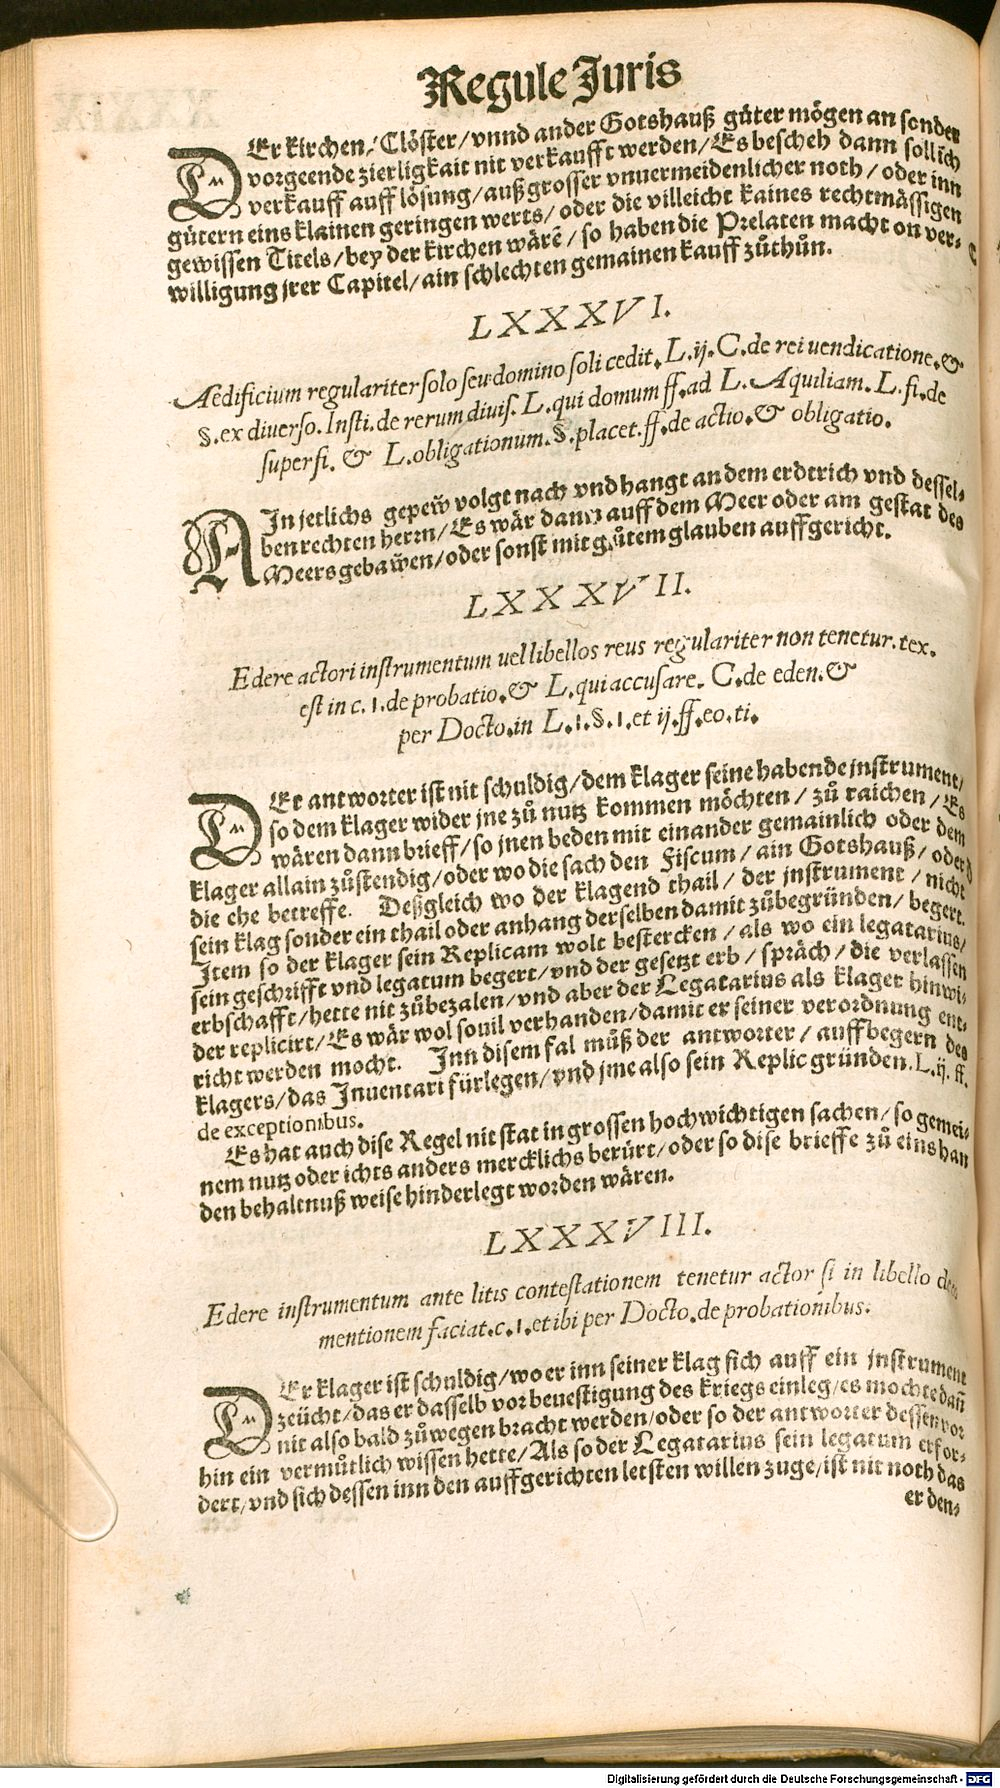 Regule Juris
DEr kirchen/ Clöster/ vnnd ander Gotshauß güter mögen an sonder
vorgeende zierligkait nit verkaufft werden/ Es bescheh dann sollich
verkauff auff lösung/ auß grosser vnuermeidenlicher noth/ oder inn
gütern eins klainen geringen werts/ oder die villeicht kaines rechtmässigen
gewissen Titels/ bey der kirchen wärẽ/ so haben die Prelaten macht on ver-
willigung jrer Capitel/ ain schlechten gemainen kauff zůthůn.
LXXXVI.
Aedificium regulariter solo seu domino soli cedit. L. ij. C. de rei uendicatione. &
§. ex diuerso. Insti. de rerum diuis. L. qui domum ff. ad L. Aquiliam. L. fi. de
superfi. & L. obligationum. §. placet. ff. de actio. & obligatio.
AIn jetlichs gepew̃ volgt nach vnd hangt an dem erdtrich vnd dessel-
ben rechten herrn/ Es wär dann auff dem Meer oder am gestat des
Meers gebaw̃en/ oder sonst mit gůtem glauben auffgericht.
LXXXVII.
Edere actori instrumentum uel libellos reus regulariter non tenetur. tex.
est in c. 1. de probatio. & L. qui accusare. C. de eden. &
per Docto. in L. 1. §. 1. et ij. ff. eo. ti.
DEr antworter ist nit schuldig/ dem klager seine habende jnstrument/
so dem klager wider jne zů nutz kommen möchten/ zů raichen/ Es
wären dann brieff/ so jnen beden mit einander gemainlich oder dem
klager allain zůstendig/ oder wo die sach den Fiscum/ ain Gotshauß/ oder
die ehe betreffe. Deßgleich wo der klagend thail/ der jnstrument/ nicht
sein klag sonder ein thail oder anhang derselben damit zůbegründen/ begert.
Item so der klager sein Replicam wolt bestercken/ als wo ein legatarius/
sein geschrifft vnd legatum begert/ vnd der gesetzt erb/ spräch/ die verlassen
erbschafft/ hette nit zůbezalen/ vnd aber der Legatarius als klager hinwi-
der replicirt/ Es wär wol souil verhanden/ damit er seiner verordnung ent-
richt werden mocht. Inn disem fal můß der antworter/ auff begern des
klagers/ das Inuentari fürlegen/ vnd jme also sein Replic gründen. L. ij. ff.
de exceptionibus.
Es hat auch dise Regel nit stat in grossen hochwichtigen sachen/ so gemei-
nem nutz oder ichts anders mercklichs berürt/ oder so dise brieffe zů eins han
den behaltnuß weise hinderlegt worden wären.
LXXXVIII.
Edere instrumentum ante litis contestationem tenetur actor si in libello
mentionem faciat. c. 1. et ibi per Docto. de probationibus.
DEr klager ist schuldig/ wo er inn seiner klag sich auff ein jnstrument
zeücht/ das er dasselb vor beuestigung des kriegs einleg/ es mochte dañ
nit also bald zůwegen bracht werden/ oder so der antworter dessen vor
hin ein vermůtlich wissen hette/ Als so der Legatarius sein legatum erfor-
dert/ vnd sich dessen inn den auffgerichten letsten willen zuge/ ist nit noth das
er den-
Digitalisierung gefördert durch die Deutsche Forschungsgemeinschaft - DFG